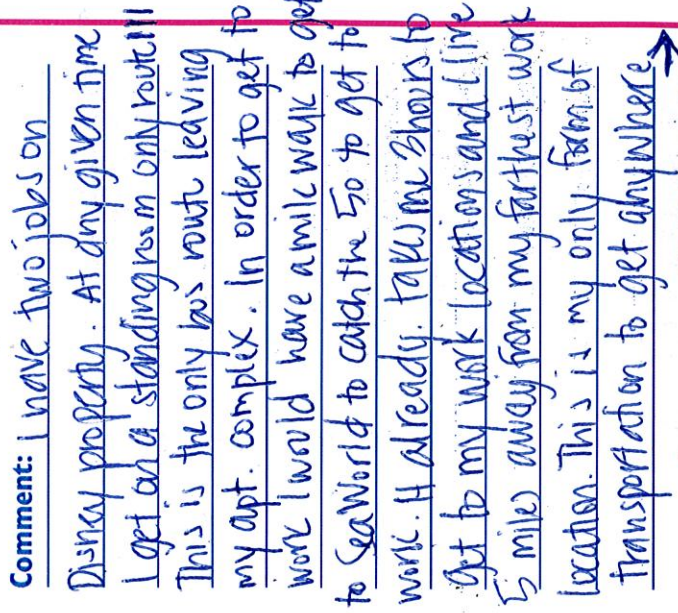 Comment: I have two jobs on
Disney property. At any given time
I get on a standing room only route 111
This is the only bus route leaving
my apt. complex. In order to get to
work I would have a mile walk to get
to SeaWorld to catch the 50 to get to
work. It already takes me 3 hours to
get to my work locations and I live
5 miles away from my farthest work
location. This is my only form of
transportation to get anywhere